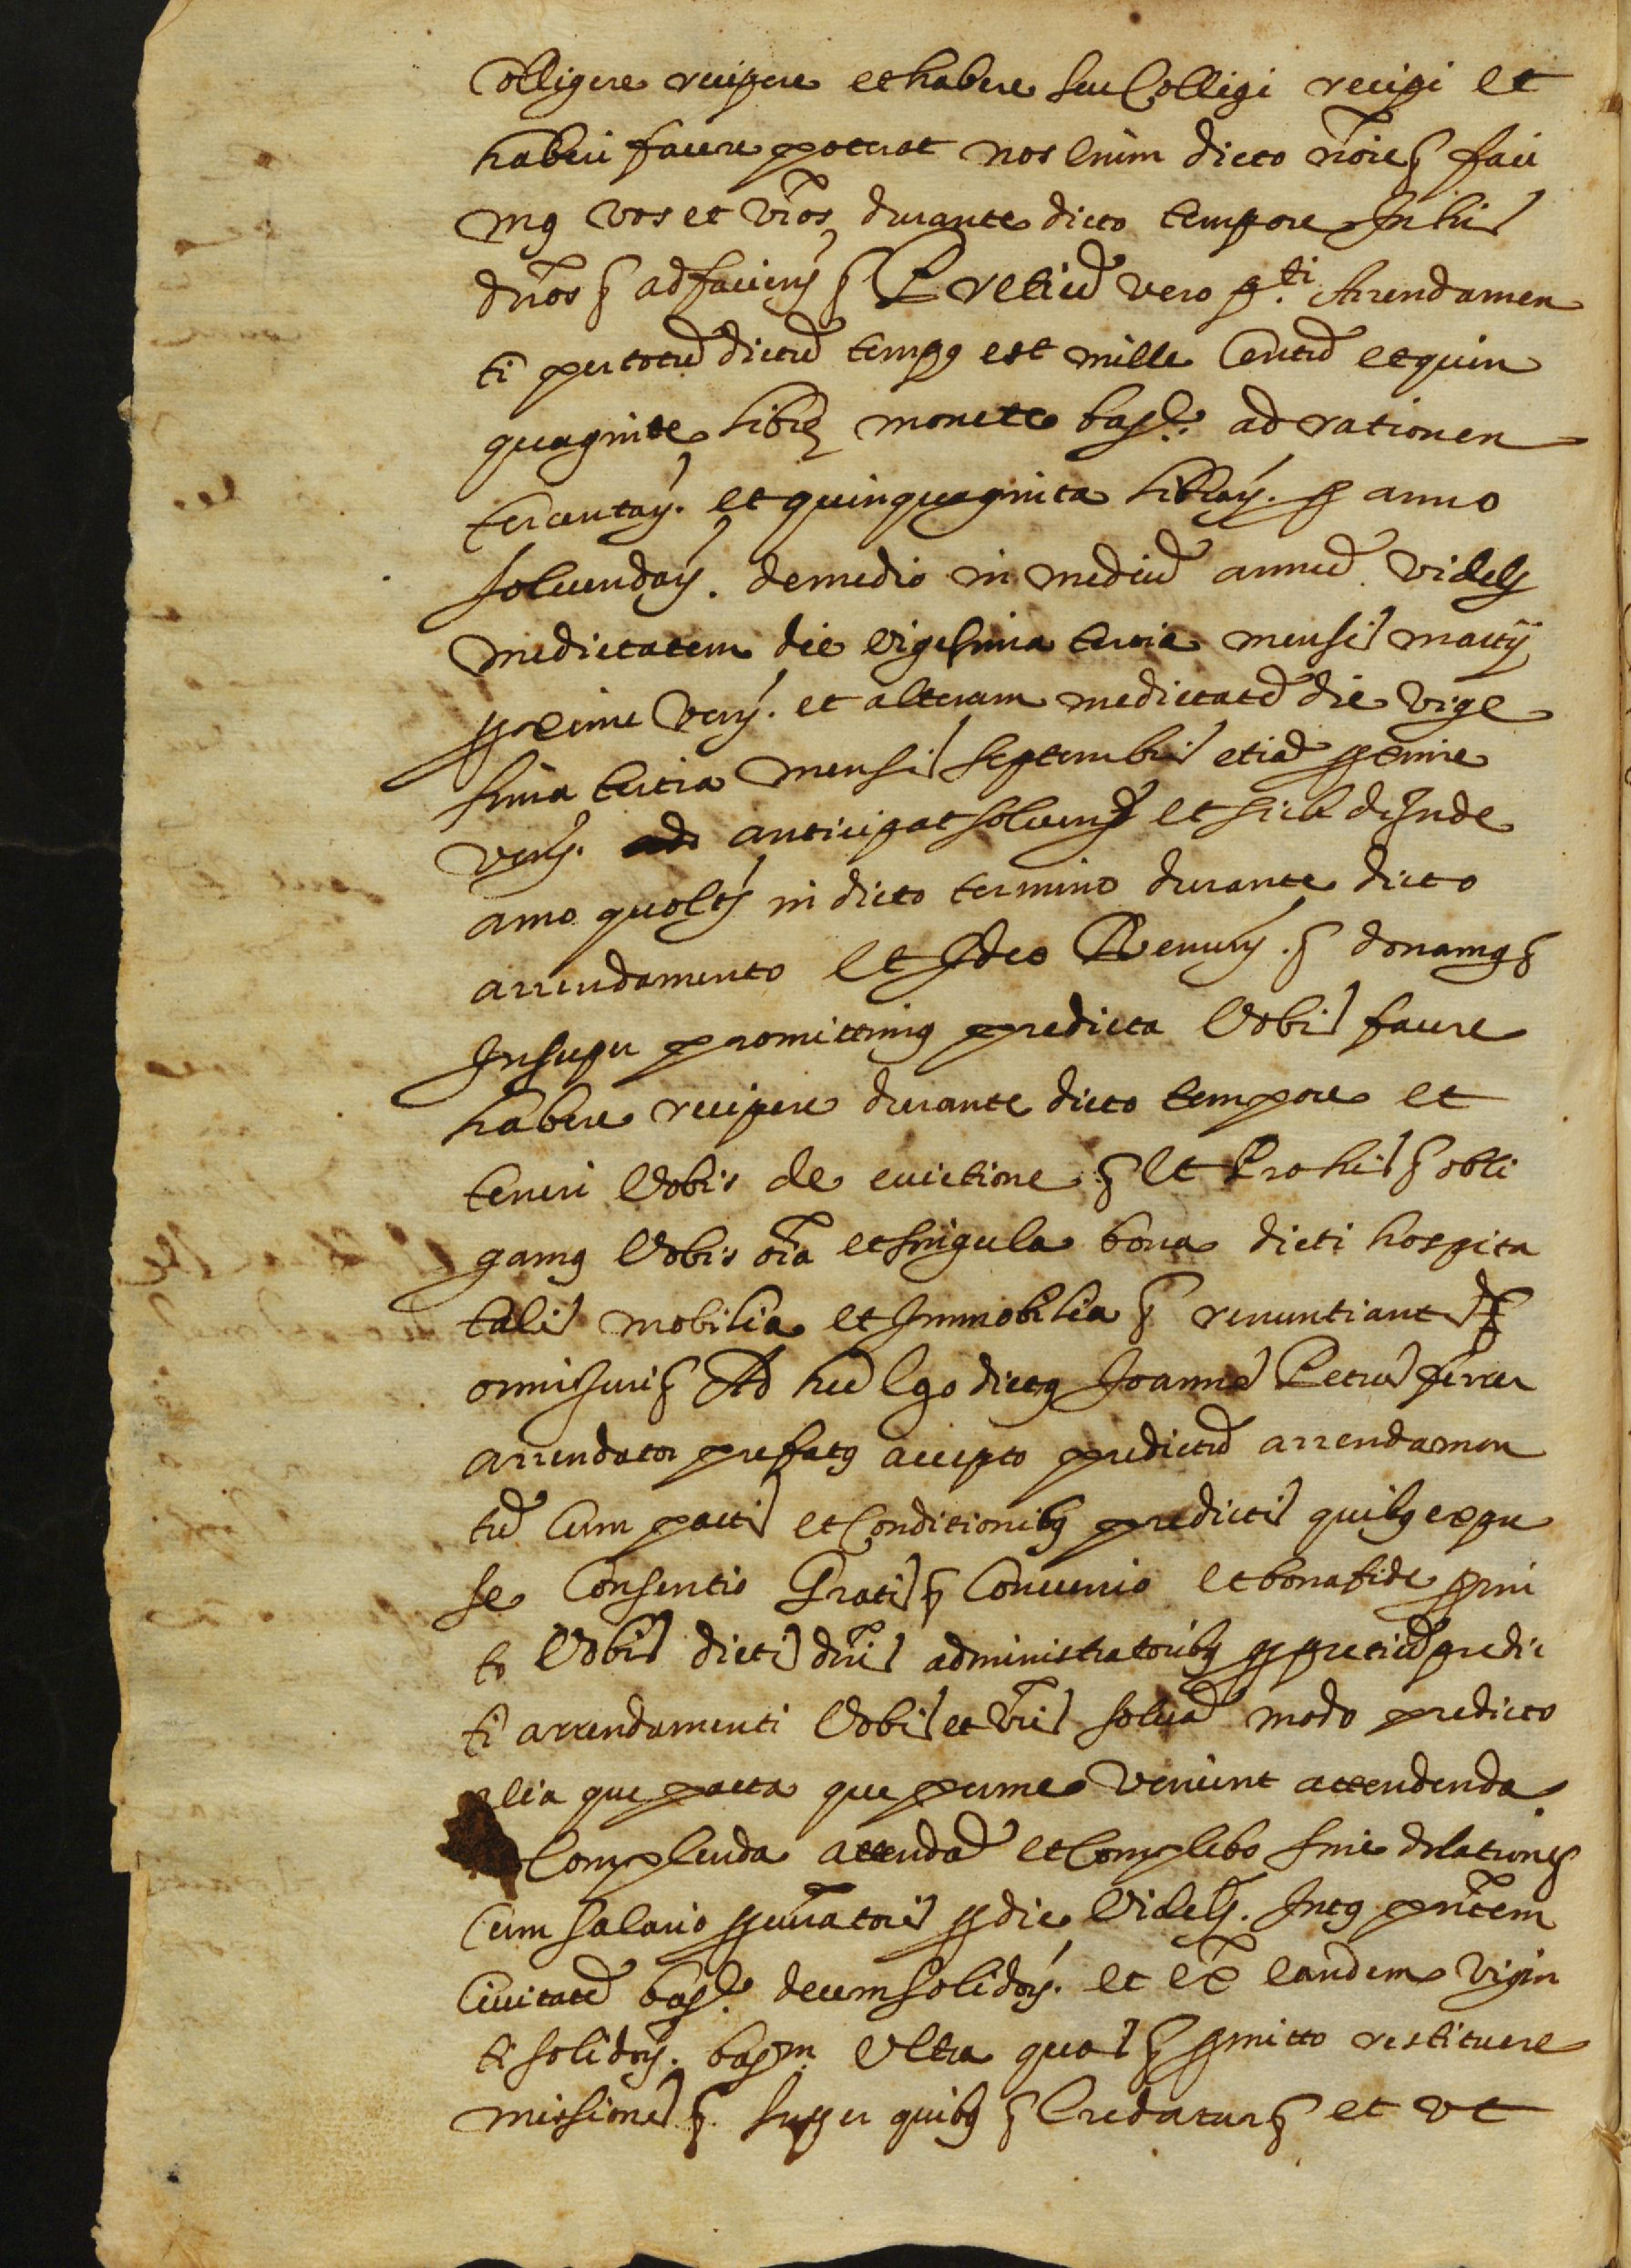 Colligere recipere et habere seu Colligi recipi et
haberi facere poterat nos enim dicto noīe etc faci
mꝰ vos et vr̄os durante dicto tempore In his
dn̄os etc ad faciend etc Pretiū vero pti Arrendamen
ti per totū dictū tempꝰ est mille Centū et quin
quaginta librꝝ monete barᵉ ad rationem
tercentaꝝ. et quinquaginta libraꝝ. ꝑ anno
soluendaꝝ. de medio in mediū annū videlꝫ
medietatem die vigesima tercia mensis martij
ꝓxime venꝭ. et alteram medietatē die vige
sima tertia mensis septembris etiā ꝓxime
venꝭ. anticipat soluend et sic deInde
anno quolꝫ in dicto termino durante dicto
arrendamento Et Ideo Renunꝭ. etc donamꝰ etc
Insuper promittimꝰ predicta Vobis facere
habere recipere durante dicto tempore et
teneri Vobis de euictione etc Et Pro his etc obli
gamꝰ Vobis oīa et singula bona dicti hospita
talis mobilia et Immobilia etc renuntiant etc
omnis juris etc Ad hec Ego dictꝰ Joannes Petrus ferrer
arrendator prefatꝰ accepto predictū arrendamen
tū Cum pactis et Conditionibꝰ predictis quibꝰ expre
se Consentio Gratis etc Conuenio et bona fide ꝓmi
to Vobis dictis dn̄is administratoribꝰ ꝙ pretiū predic
ti arrendamenti Vobis et vr̄is soluā modo predicto
alia que pacta que per me veniunt attendenda
Complenda attendā et Complebo sine dilatione etc
Cum salario ꝓcur̄atoris ꝑ die Videlꝫ. Intꝰ pn̄tem
Ciuitatē barᵉ. decem solidoꝝ. et ex̄ eandem vigin
ti solidoꝝ. barm̄ Ultra quos etc ꝓmitto restituere
missiones etc. super quibꝰ etc Credatur etc et vt